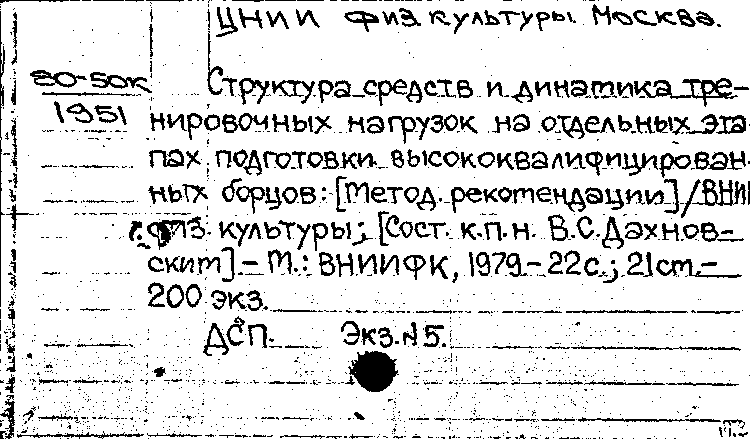 ЦНИИ физкультуры Москва.
80-50к
1951
Структура средств и динамика тре-
нировочных нагрузок на отдельных эта
пах подготовки высококвалифицирован
ных борцов: [Метод. рекомендации] / ВНИИ
физ. культуры; [Сост. к.п.н. В.С. Дахнов-
ским] – М.: ВНИИФК, 1979 – 22с.; 21cm. –
200 экз.
ДСП. Экз. №5.